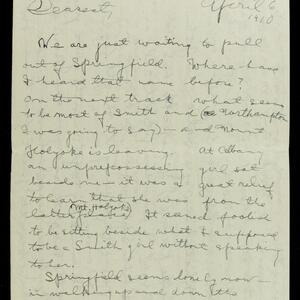 Dearest,
April 6
1960
We are just waiting to pull
out of Springfield. Where have
I heard that name before?
On the next track what seems
to be most of Smith and (Northampton
I was going to say) - and Mount
Holyoke is leaving. At Albany
an unprepossessing girl sat
beside me - it was a great relief
to learn that she was from the
latter place (Mt. Holyoke). It seemed foolish
to be sitting beside what I supposed
to be a Smith girl without speaking
to her.
Springfield seems lonely now -
in walking up and down the